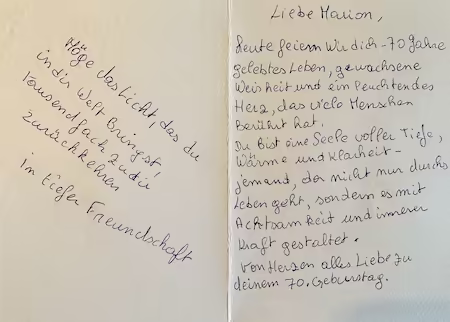 Möge das Licht, das du
in die Welt Bringst
tausendfach zu dir
zurückkehren
In tiefer Freundschaft
Liebe Marion,
heute feiern wir dich - 70 Jahre
gelebtes Leben, gewachsene
Weisheit und ein leuchtendes
Herz, das viele Menschen
Berührt hat.
Du bist eine Seele voller Tiefe,
Wärme und Klarheit -
jemand, der nicht nur durchs
Leben geht, sondern es mit
Achtsamkeit und innerer
Kraft gestaltet.
Von Herzen alles Liebe zu
deinem 70. Geburstag.